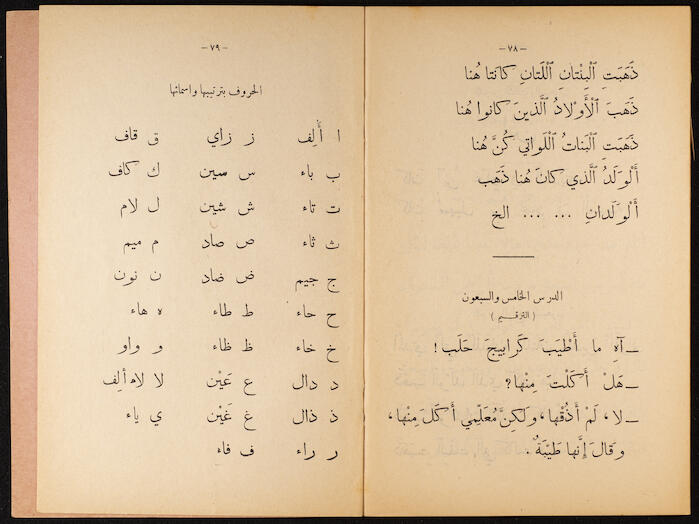 — ٧٨ —
ذَهَبَتِ ٱلْبِنْتانِ ٱللَّتانِ كانَتا هُنا
ذَهَبَ ٱلْأَوْلادُ ٱلَّذينَ كانوا هُنا
ذَهَبَتِ ٱلْبَناتُ ٱللَّواتي كُنَّ هُنا
أَلْوَلَدُ ٱلَّذي كانَ هُنا ذَهَب
أَلْوَلَدانِ ... ... الخ
الدرس الخامس والسبعون
(الترقيم)
— آهِ ما أَطْيَبَ كَرابيجَ حَلَب!
— هَلْ أَكَلْتَ مِنْها؟
— لا، لَمْ أَذُقْها، ولٰكنَّ مُعَلِّمي أَكَلَ مِنْها،
وَقالَ إِنَّها طَيِّبَةٌ.
— ٧٩ —
الحروف بترتيبها واسمائها
ا أَلِف ز زاي ق قاف
ب باء س سين ك كاف
ت تاء ش شين ل لام
ث ثاء ص صاد م ميم
ج جيم ض ضاد ن نون
ح حاء ط طاء ه هاء
خ خاء ظ ظاء و واو
د دال ع عَيْن لا لام ألِف
ذ ذال غ غَيْن ي ياء
ر راء ف فاء